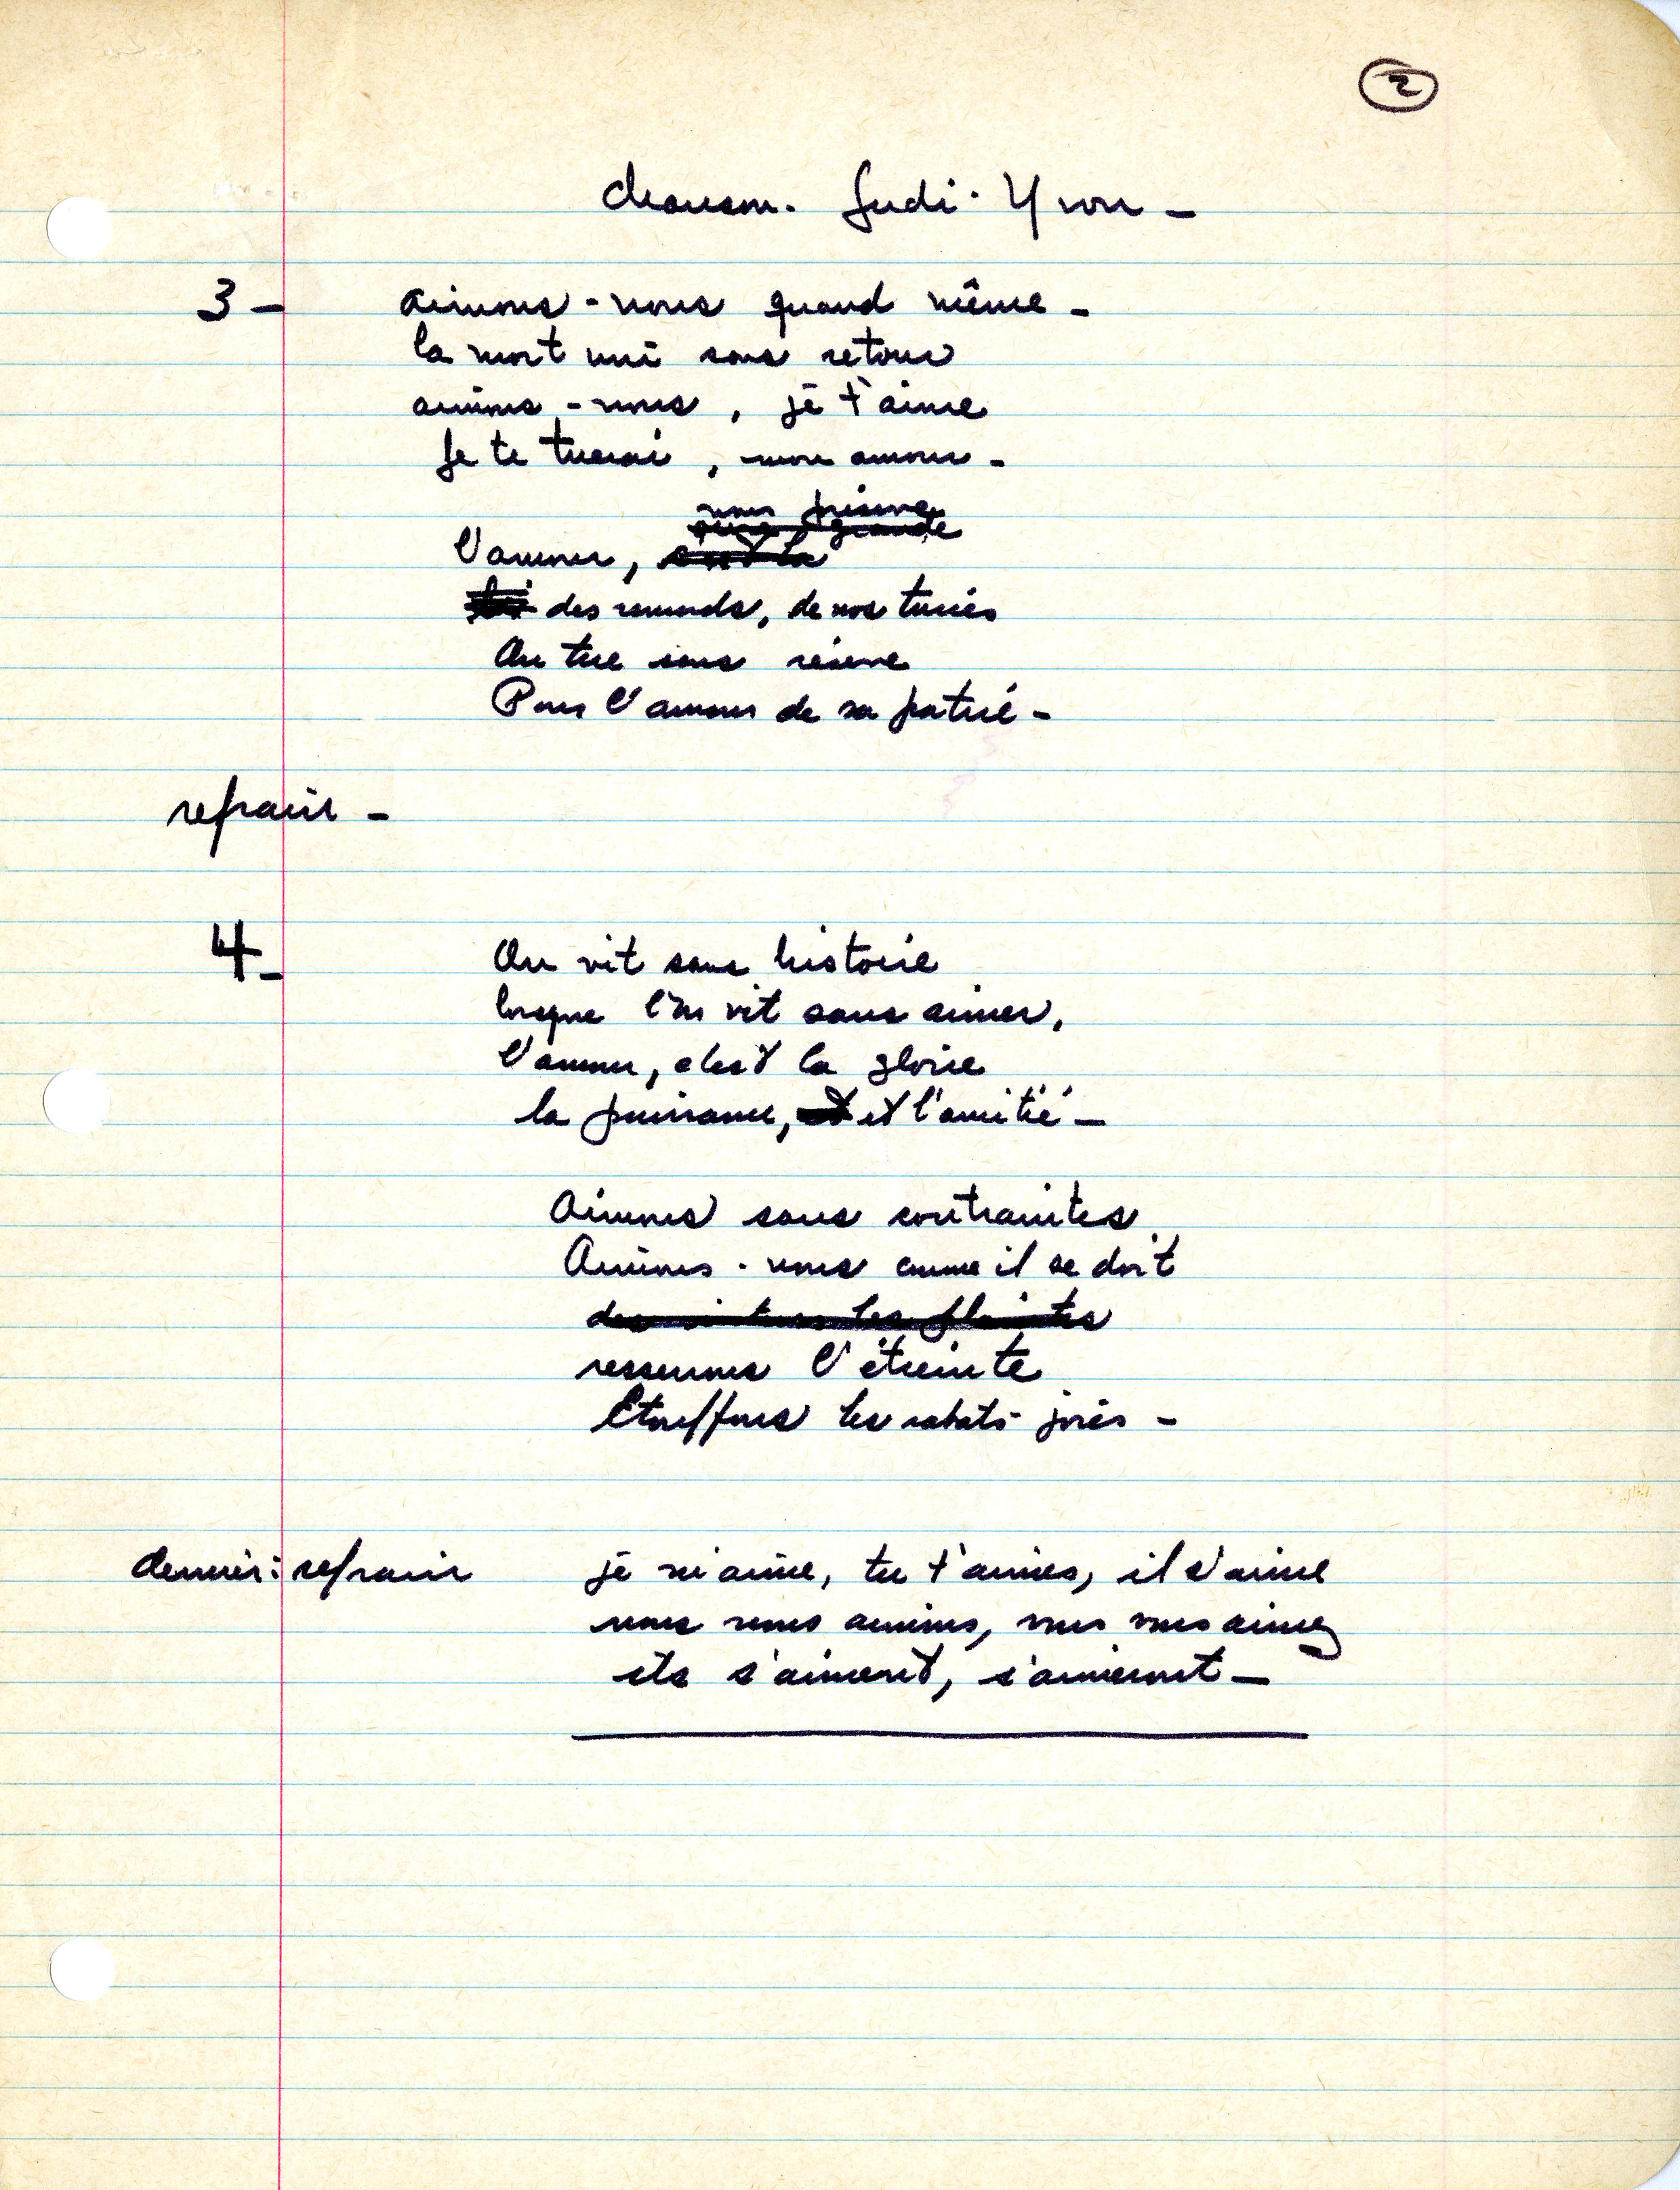 2
chanson. Judi. Yvon -
3 - aimons-nous quand même -
la mort uni sans retour
aimons-nous, je t'aime
Je te tuerai, mon amour -
nous préserve
grande
L'amour, est la
des remords, de nos tueries
On tue sans réserve
Pour l'amour de sa patrie -
refrain -
4 - On vit sans histoire
lorsque l'on vit sans aimer,
l'amour, c'est la gloire
la puissance, et l'amitié -
Aimons sans contraintes
Aimons-nous comme il se doit
resserrons l'étreinte
Etouffons les rabats-joies -
dernier: refrain je m'aime, tu t'aimes, il s'aime
nous nous aimons, vous vous aimez
ils s'aiment, s'aimeront -